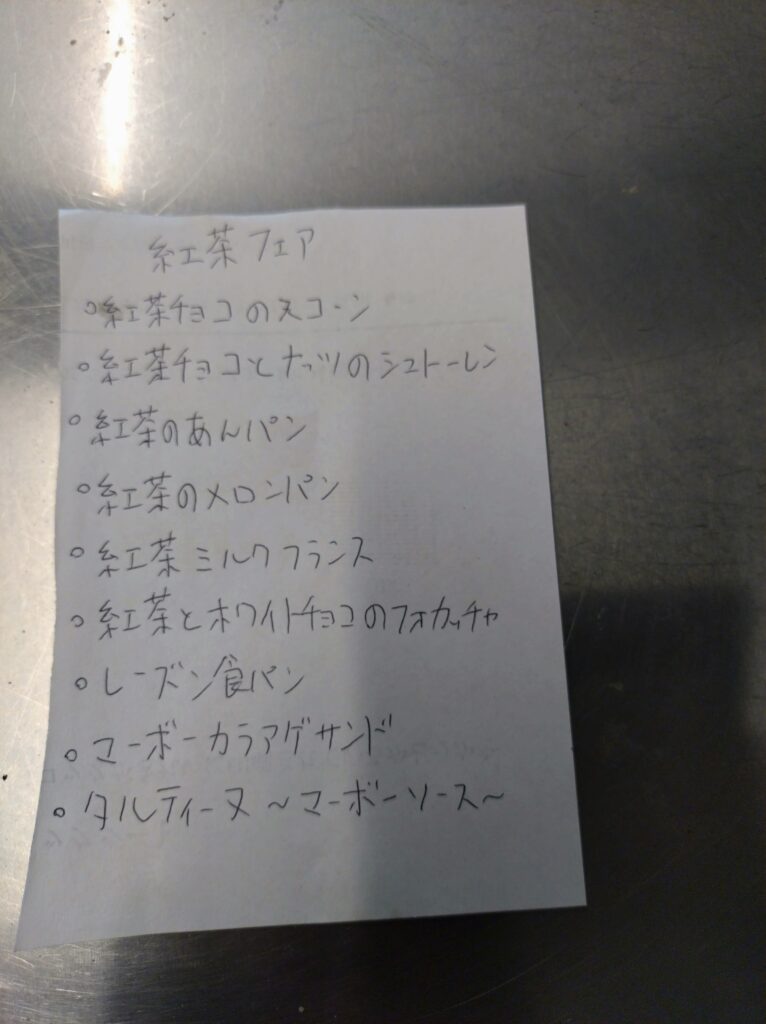 紅茶フェア
○紅茶チョコのスコーン
○紅茶チョコとナッツのシュトーレン
○紅茶のあんパン
○紅茶のメロンパン
○紅茶ミルクフランス
○紅茶とホワイトチョコのフォカッチャ
○レーズン食パン
○マーボーカラアゲサンド
○タルティーヌ～マーボーソース～